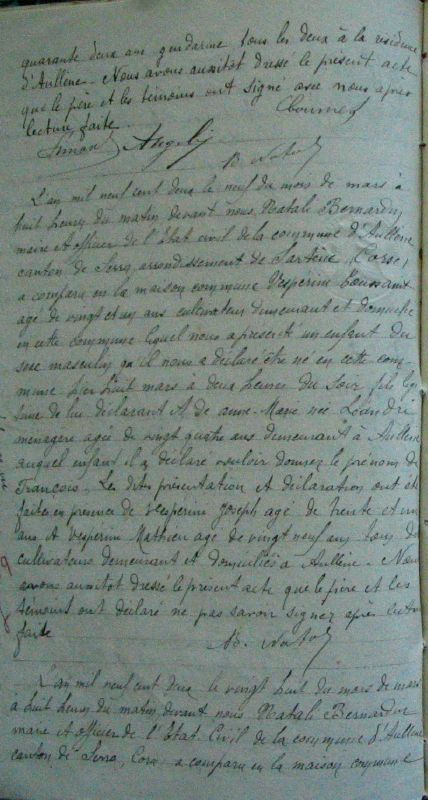 quarante deux ans gendarme tous les deux à la résidence
d'Aullène. Nous avons aussitôt dressé le présent acte
que le père et les témoins ont signé avec nous après
lecture faite.
Simon Angelj
L'an mil neuf cent deux le neuf du mois de mars à
huit heures du matin devant nous Natali Bernardin
maire et officier de l'Etat civil de la commune d'Aullène
canton de Serra, arrondissement de Sartène, Corse,
a comparu en la maison commune Vesperini Toussaint
agé de vingt et un ans cultivateur demeurant et domicilié
en cette commune lequel nous a présenté un enfant du
sexe masculin qu'il nous a déclaré être né en cette com-
mune hier huit mars à deux heures du soir fils légi
time de lui déclarant et de Anne-Marie née Léandri
ménagère agée de vingt quatre ans demeurant à Aullène
auquel enfant il a déclaré vouloir donner le prénom de
François. Les dites présentation et déclaration ont été
faites en présence de Vesperini Joseph agé de trente et un
ans et Vesperini Mathieu agé de vingt neuf ans tous deux
cultivateurs demeurant et domiciliés à Aullène. Nous
avons aussitôt dressé le présent acte que le père et les
témoins ont déclaré ne pas savoir signer après lecture
faite
L'an mil neuf cent deux le vingt huit du mois de mars
à huit heures du matin devant nous Natali Bernardin
maire et officier de l'Etat Civil de la commune d'Aullène
canton de Serra, Corse, a comparu en la maison commune